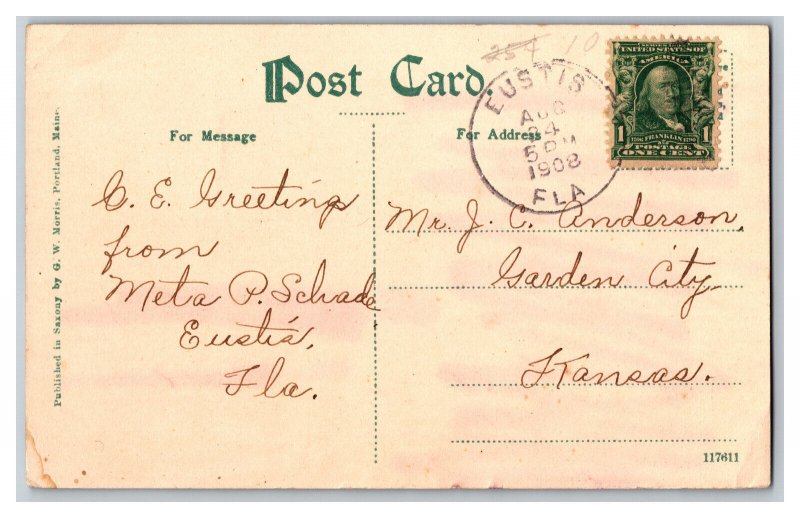 Post Card
254 10
For Message
For Address
EUSTIS
AUG
4
5 PM
1908
FLA
SERIES 1902
UNITED STATES OF
AMERICA
1 1706 FRANKLIN 1790 1
POSTAGE
ONE CENT
C. E. Greeting
from
Meta P. Schade
Eustis,
Fla.
Mr. J. C. Anderson,
Garden City
Kansas.
Published in Saxony by G. W. Morris, Portland, Maine.
117611